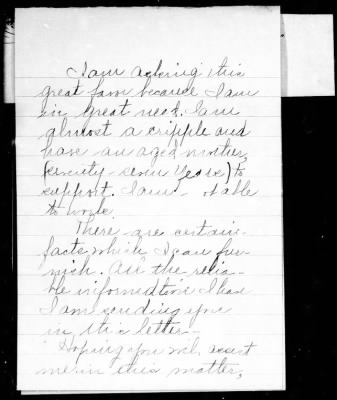 I am asking this
great favor because I am
in great need. I am
almost a cripple and
have an aged mother,
(seventy-seven years) to
support. I am - able
to work.
There are certain
facts which I can fur-
nish. All the relia-
ble information I have
I am sending you
in this letter -
Hoping you will assist
me in this matter,